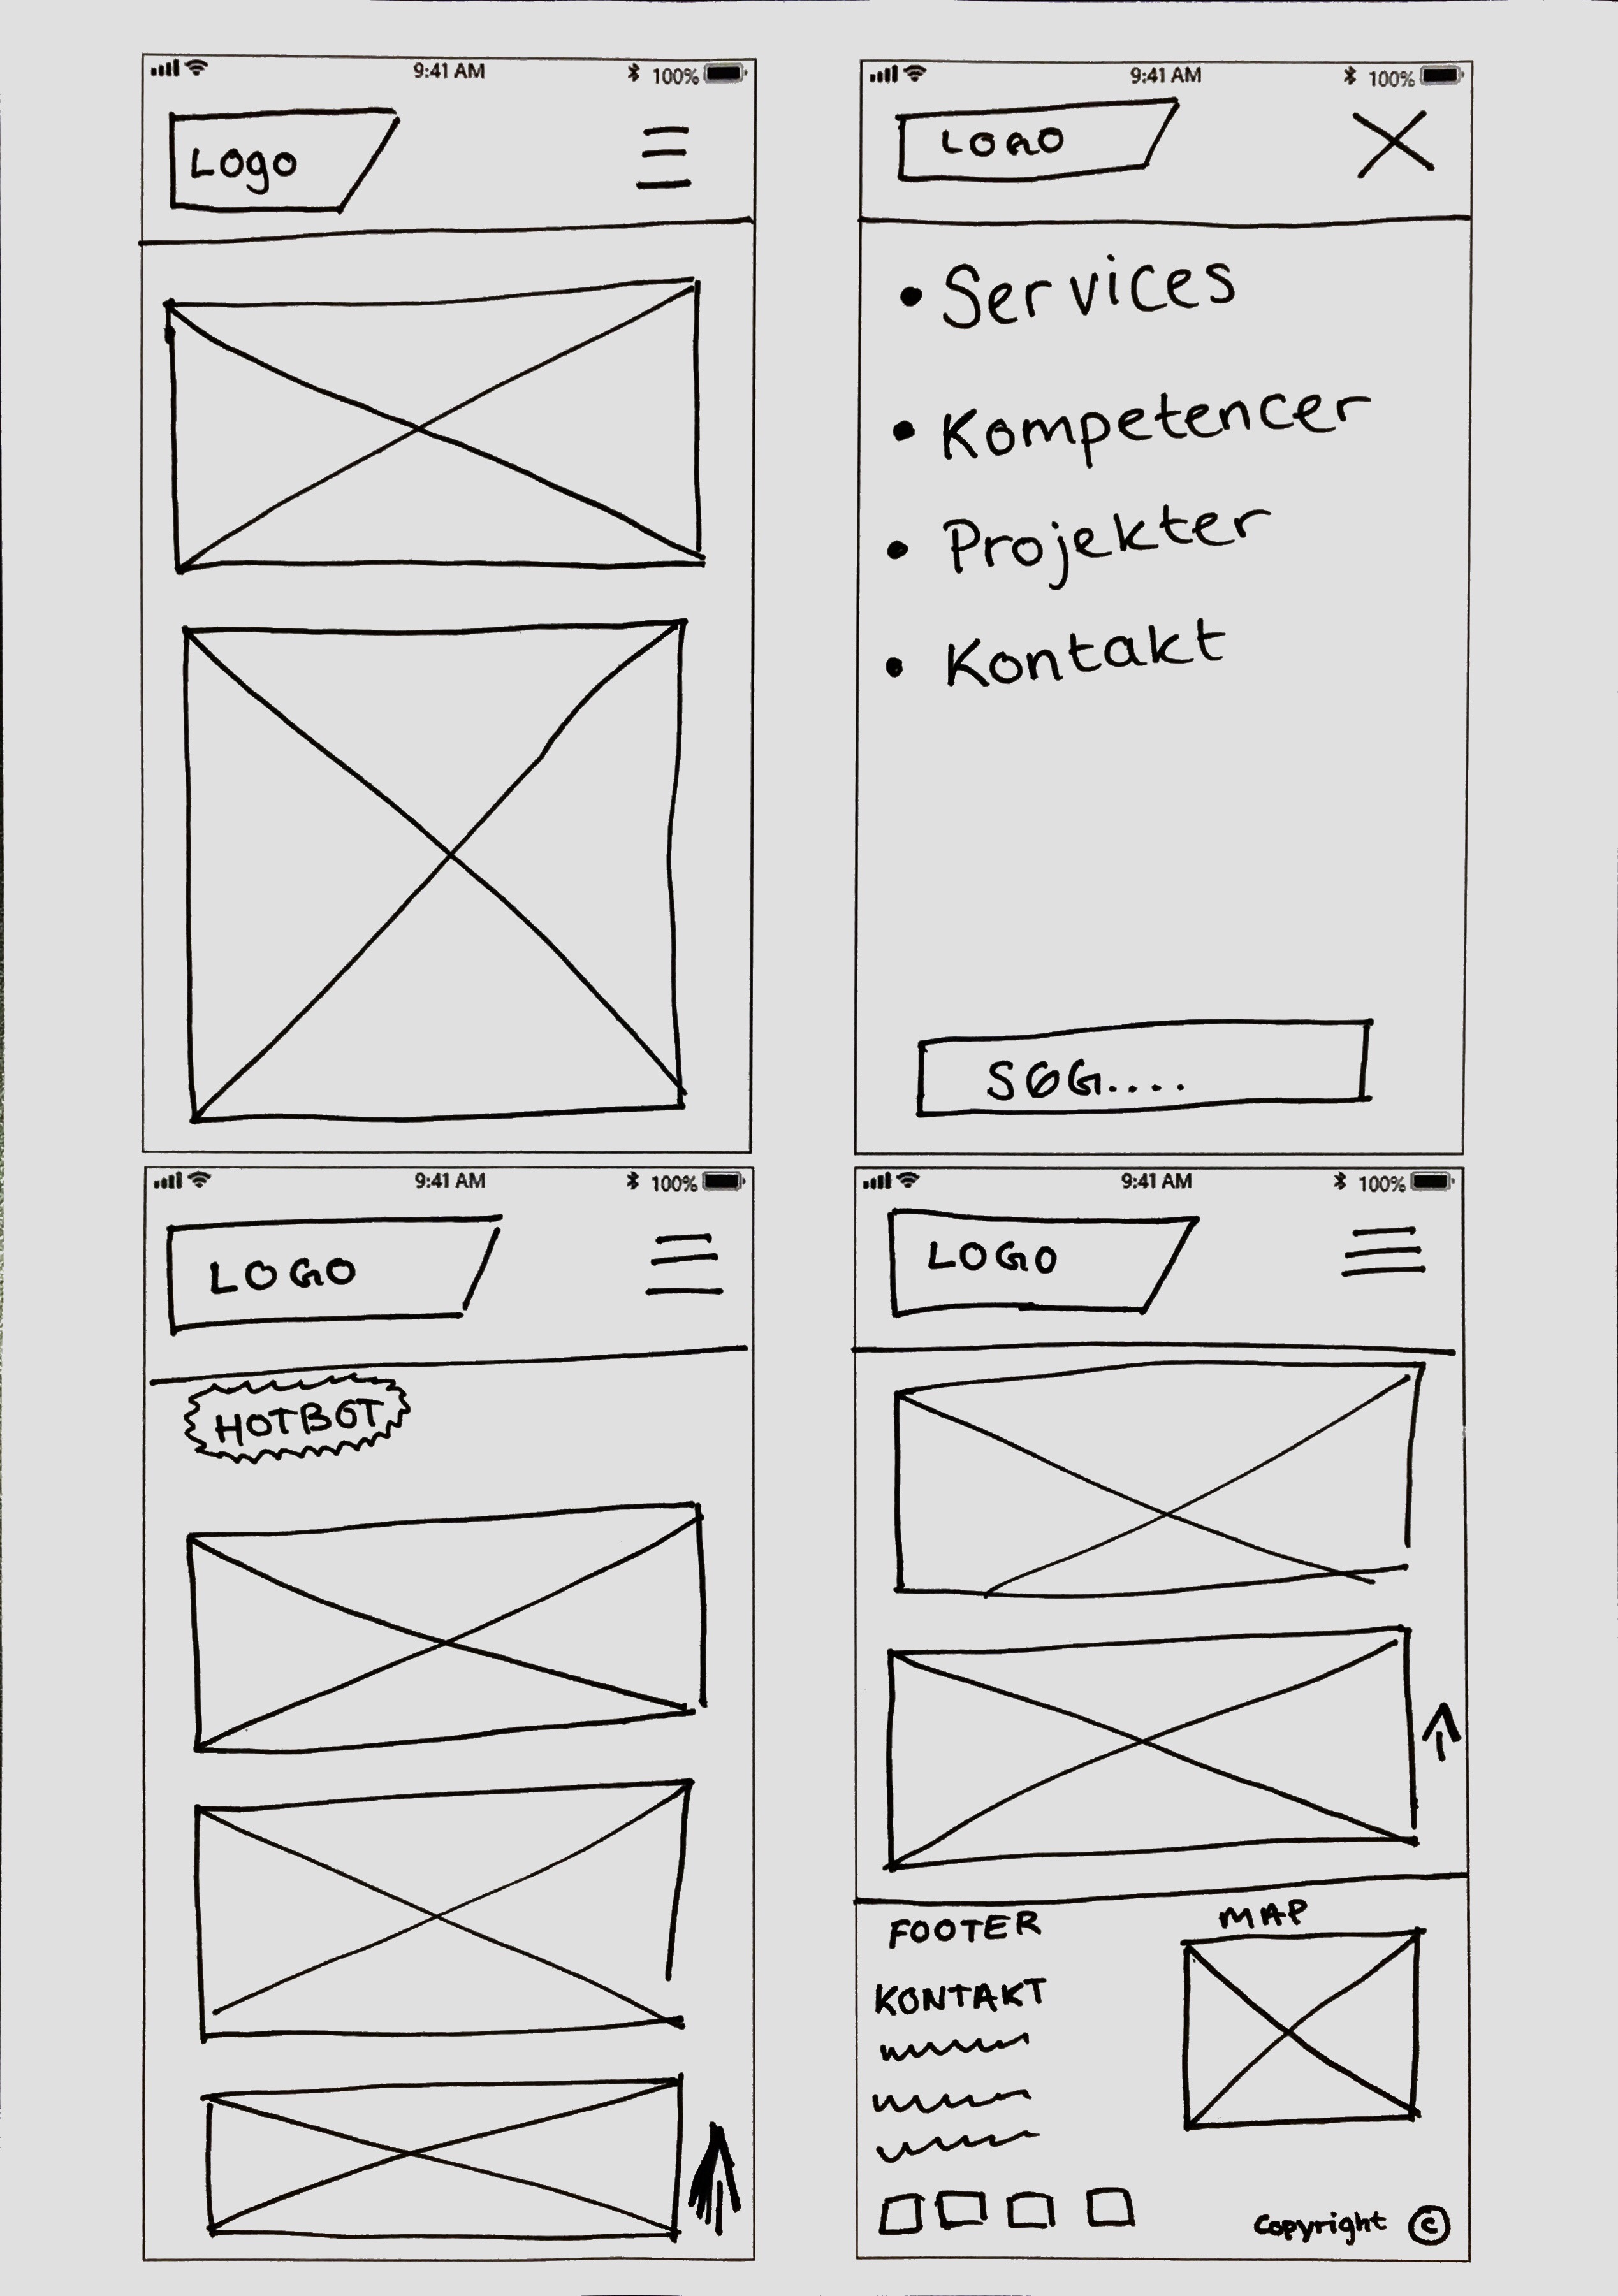 9:41 AM 100%
Logo
9:41 AM 100%
LOGO
• Services
• Kompetencer
• Projekter
• Kontakt
SØG....
9:41 AM 100%
LOGO
HOTBOT
9:41 AM 100%
LOGO
FOOTER
MAP
KONTAKT
Copyright ©